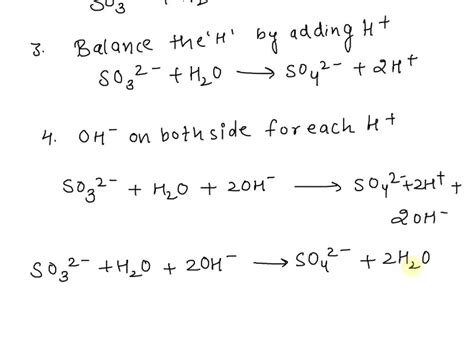 SO₃
3. Balance the 'H' by adding H⁺
SO₃²⁻ + H₂O ⟶ SO₄²⁻ + 2H⁺
4. OH⁻ on both side for each H⁺
SO₃²⁻ + H₂O + 2OH⁻ ⟶ SO₄²⁻ + 2H⁺ +
2OH⁻
SO₃²⁻ + H₂O + 2OH⁻ ⟶ SO₄²⁻ + 2H₂O